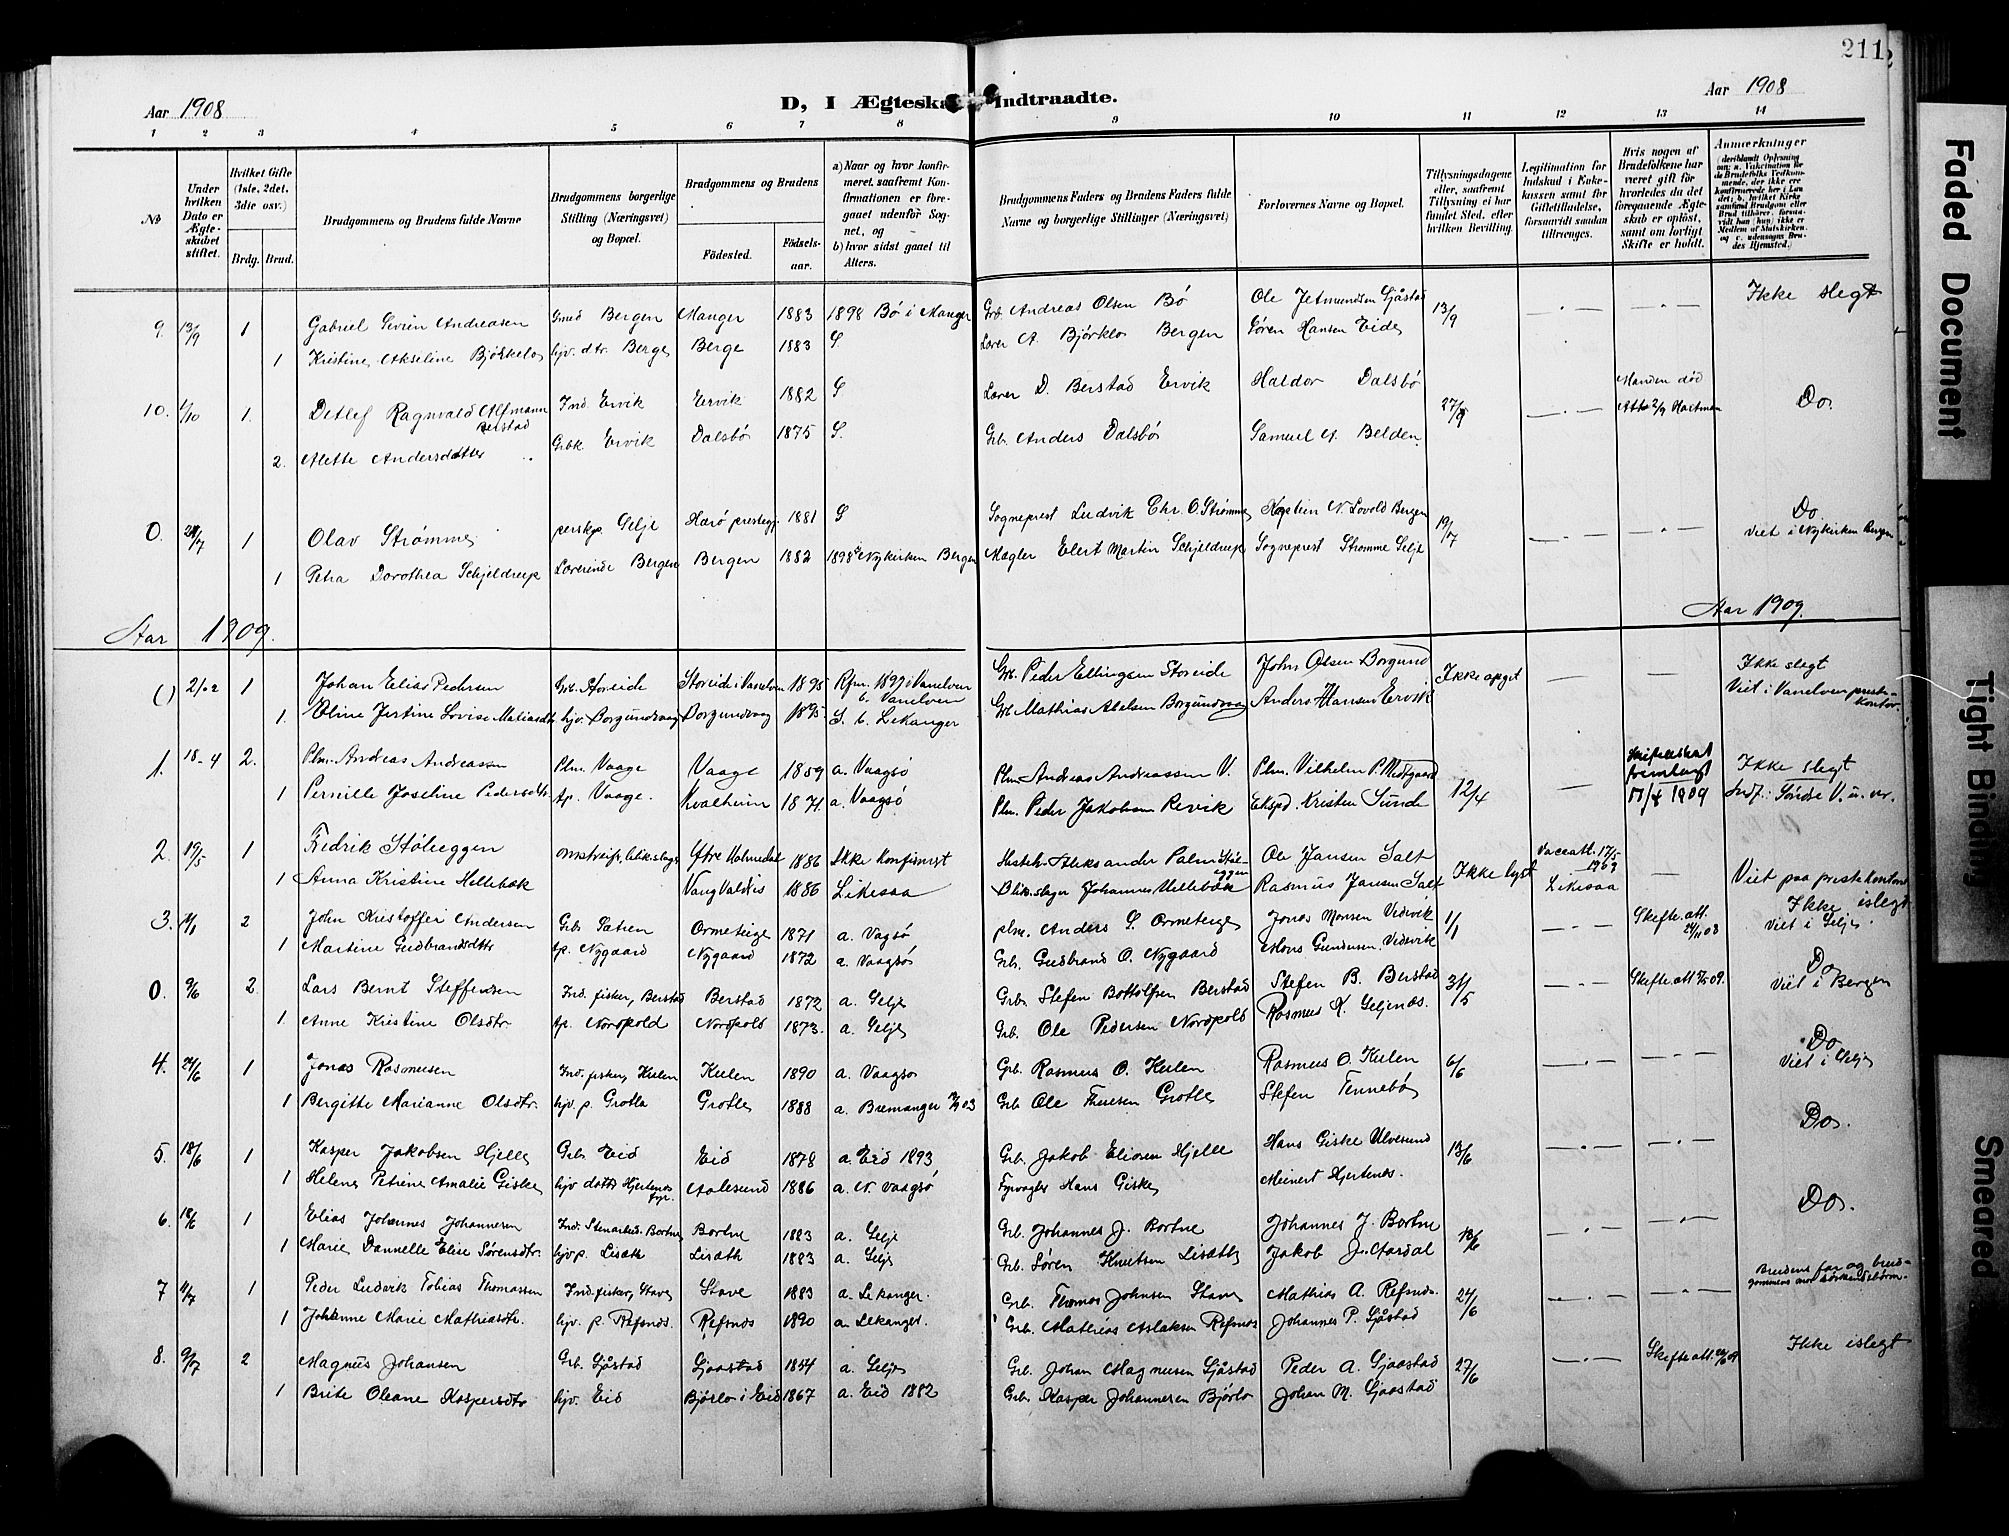 211
Aar 1908
D, I Ægteska
Indtraadte.
Aar 1908
1 2 3 4 5 6 7 8 9 10 11 12 13 14
No
Under hvilken Dato er Ægteskabet stiftet.
Hvilket Gifte (1ste, 2det, 3die osv.)
Brdg. Brud.
Brudgommens og Brudens fulde Navne
Brudgommens borgerlige Stilling (Næringsvei) og Bopæl.
Brudgommens og Brudens
Födested.
Födselsaar.
a) Naar og hvor konfirmeret, saafremt Konfirmationen er foregaaet udenfor Sognet, og
b) hvor sidst gaaet til Alters.
Brudgommens Faders og Brudens Faders fulde Navne og borgerlige Stillinger (Næringsvei)
Forlovernes Navne og Bopæl.
Tillysningsdagene eller, saafremt Tillysning ei har fundet Sted, efter hvilken Bevilling.
Legitimation for Indskud i Enkekassen samt for Giftetilladelse, forsaavidt saadan tiltrænges.
Hvis nogen af Brudefolkene har været gift för hvorledes da det foregaaende Ægteskab er oplöst, samt om lovligt Skifte er holdt.
Anmærkninger
9. 13/9 1 Gabriel Severin Andreasen Smed Bergen Manger 1883 1898 Bø i Manger Grb. Andreas Olsen Bø Ole Jetmundsen Sjåstad 13/9 — " — — " — Ikke slegt
1 Kristine Akseline Bjørkelo hjv. dtr. Berge Berge 1883 S. Lærer A. Bjørklo Bergen Søren Hansen Eide
10. 4/10 1. Detlef Ragnvald Alfmann Berstad Ind. Ervik Ervik 1882 S Lærer D. Berstad Ervik Haldor Dalsbø 27/9 — " — Manden død Do.
2. Alette Andersdatter Grbk Ervik Dalsbø 1875 S. Grb. Anders Dalsbø Samuel A. Belden
0. 1 Olav Strømme persk. Selje Herø prestegj. 1881 S Sogneprest Ludvik Chr. O. Strømme Kaptein N. Lovold Bergen 19/7 — " — — " — Do. Viet i Nykirken Bergen
1 Petra Dorothea Schjeldrup Lærerinde Bergen Bergen 1882 1898 Nykirken Bergen Mægler Elert Martin Schjeldrup Sogneprest Strømme Selje
Aar 1909.
Aar 1909.
() 2/02 1 Johan Elias Pedersen Grb. Storeide Storeide i Vanelven 1895 Kfm. 1897 i Vanelven b. Vanelven Grb. Peder Ellingsen Storeide John Olsen Borgund Ikke opget — — Ikke slegt Viet i Vanelven prestekontor.
1. Eline Jertine Lovise Matiasdtr hjv. Borgundvaag Borgundvaag 1895 S. b. Lekanger Grb. Mathias Abelsen Borgundvaag Anders Hansen Ervik
1. 18-4 2. Plm. Andreas Andreassen Plm. Vaage Vaage 1859 a. Vaagsø Plm. Andreas Andreassen V. Plm. Vilhelm P. Midtgaard 12/4 — Skifteattest fremlagt 17/4 1909 Ikke slegt Indf. i Søndre V.
1 Pernille Joseline Pedersdtr. tp. Vaage. Kvalheim 1871. a. Vaagsø Plm. Peder Jakobsen Revik Eksped. Kristen Sunde
2. 19/5 1 Fredrik Støleggen omstreif. blikslager Ytre Holmedal 1886 Ikke konfirmert Aleksander Palm Støleggen Ole Jansen Salt Ikke lyst Vacc.att. 17/5 1909 — Viet paa prestekontoret
1 Anna Kristine Hellebæk Vang Valdris 1886 Likesaa Blikslager Johannes Hellebæk Rasmus Jansen Salt Likesaa Ikke islegt
3. 2 John Kristoffer Andersen Grb. Sætren Ormeteige 1871 a. Vagsø plm. Anders S. Ormeteige Jonas Monsen Vedvik 1/1 — " — Skifte.att. 24/11 08 Viet i Selje
1 Martine Gudbrandsdtr tp. Nygaard Nygaard 1872 a. Vaagsø Grb. Gudbrand O. Nygaard Mons Gundersen Vedvik
0. 9/6 2. Lars Bernt Steffensen Ind. fisker, Berstad Berstad 1872 a. Selje Grb. Stefen Bottolfsen Berstad Stefen B. Berstad 31/5 — " — Skifte.att. Do. Viet i Bergen
1. Anne Kristine Olsdtr. tp. Nordpold Nordpold 1873. a. Selje Grb. Ole Pedersen Nordpold Rasmus K. Seljenæs.
4. 24/6 1 Jonas Rasmusen Ind. fisker, Kulen Kulen 1890 a. Vaagsø Grb. Rasmus O. Kulen Rasmus O. Kulen 6/6 — " — — " — Do. Viet i Selje
1 Bergitte Marianne Olsdtr. hjv. p. Grotle Grotle 1888 a. Bremanger 03 Grb Ole Theresen Grotle Stefen Tennebø
5. 18/6 1 Kasper Jakobsen Hjelle Grb. Eid Eid 1878 a. Eid 1893 Grb. Jakob Eliasen Hjelle Hans Giske Ulvesund 13/6 — " — — " — Do.
1 Helene Petrine Amalie Giske hjv. datter Hjertenes fyr. Aalesund 1886 a. N. Vaagsø Fyrvogter Hans Giske Meinert Hjertenes.
6. 18/6 1 Elias Johannes Johannesen Ind. Stenarbeid. Bortne Bortne 1883 a. Selje Grb. Johannes J. Bortne Johannes J. Bortne 13/6 — " — — " — Do.
1 Marie Dannelle Elise Sørensdtr. hjv. p. Lisæth Lisæth 1883 a. Selje Grb. Søren Knutsen Lisæth Jakob J. Aardal
7 4/7 1 Peder Ludvik Tobias Thomassen Ind. fisker, Stave Stave 1883 a. Lekanger. Grb. Thomas Johnsen Stave Mathias A. Refsnes. 24/6 — " — — " — Brudens far og brudgommens mor søskendebørn.
1 Johanne Marie Mathiasdtr. hjv. p. Refsnes. Refsnes 1890 a. Lekanger. Grb. Mathias Aslaksen Refsnes Johannes P. Sjåstad
8. 9/7 2 Magnus Johansen Grb. Sjåstad Sjaastad 1854 a. Selje Grb. Johan Magnusen Sjåstad Peder A. Sjaastad 27/6 — " — Skifte att. Ikke islegt
1 Brite Oleane Kaspersdtr hjv. Eid Bjørlo i Eid 1867 a. Eid 1882 Grb. Kasper Johannesen Bjørlo Johan M. Sjaastad
Faded Document
Tight Binding
Smeared